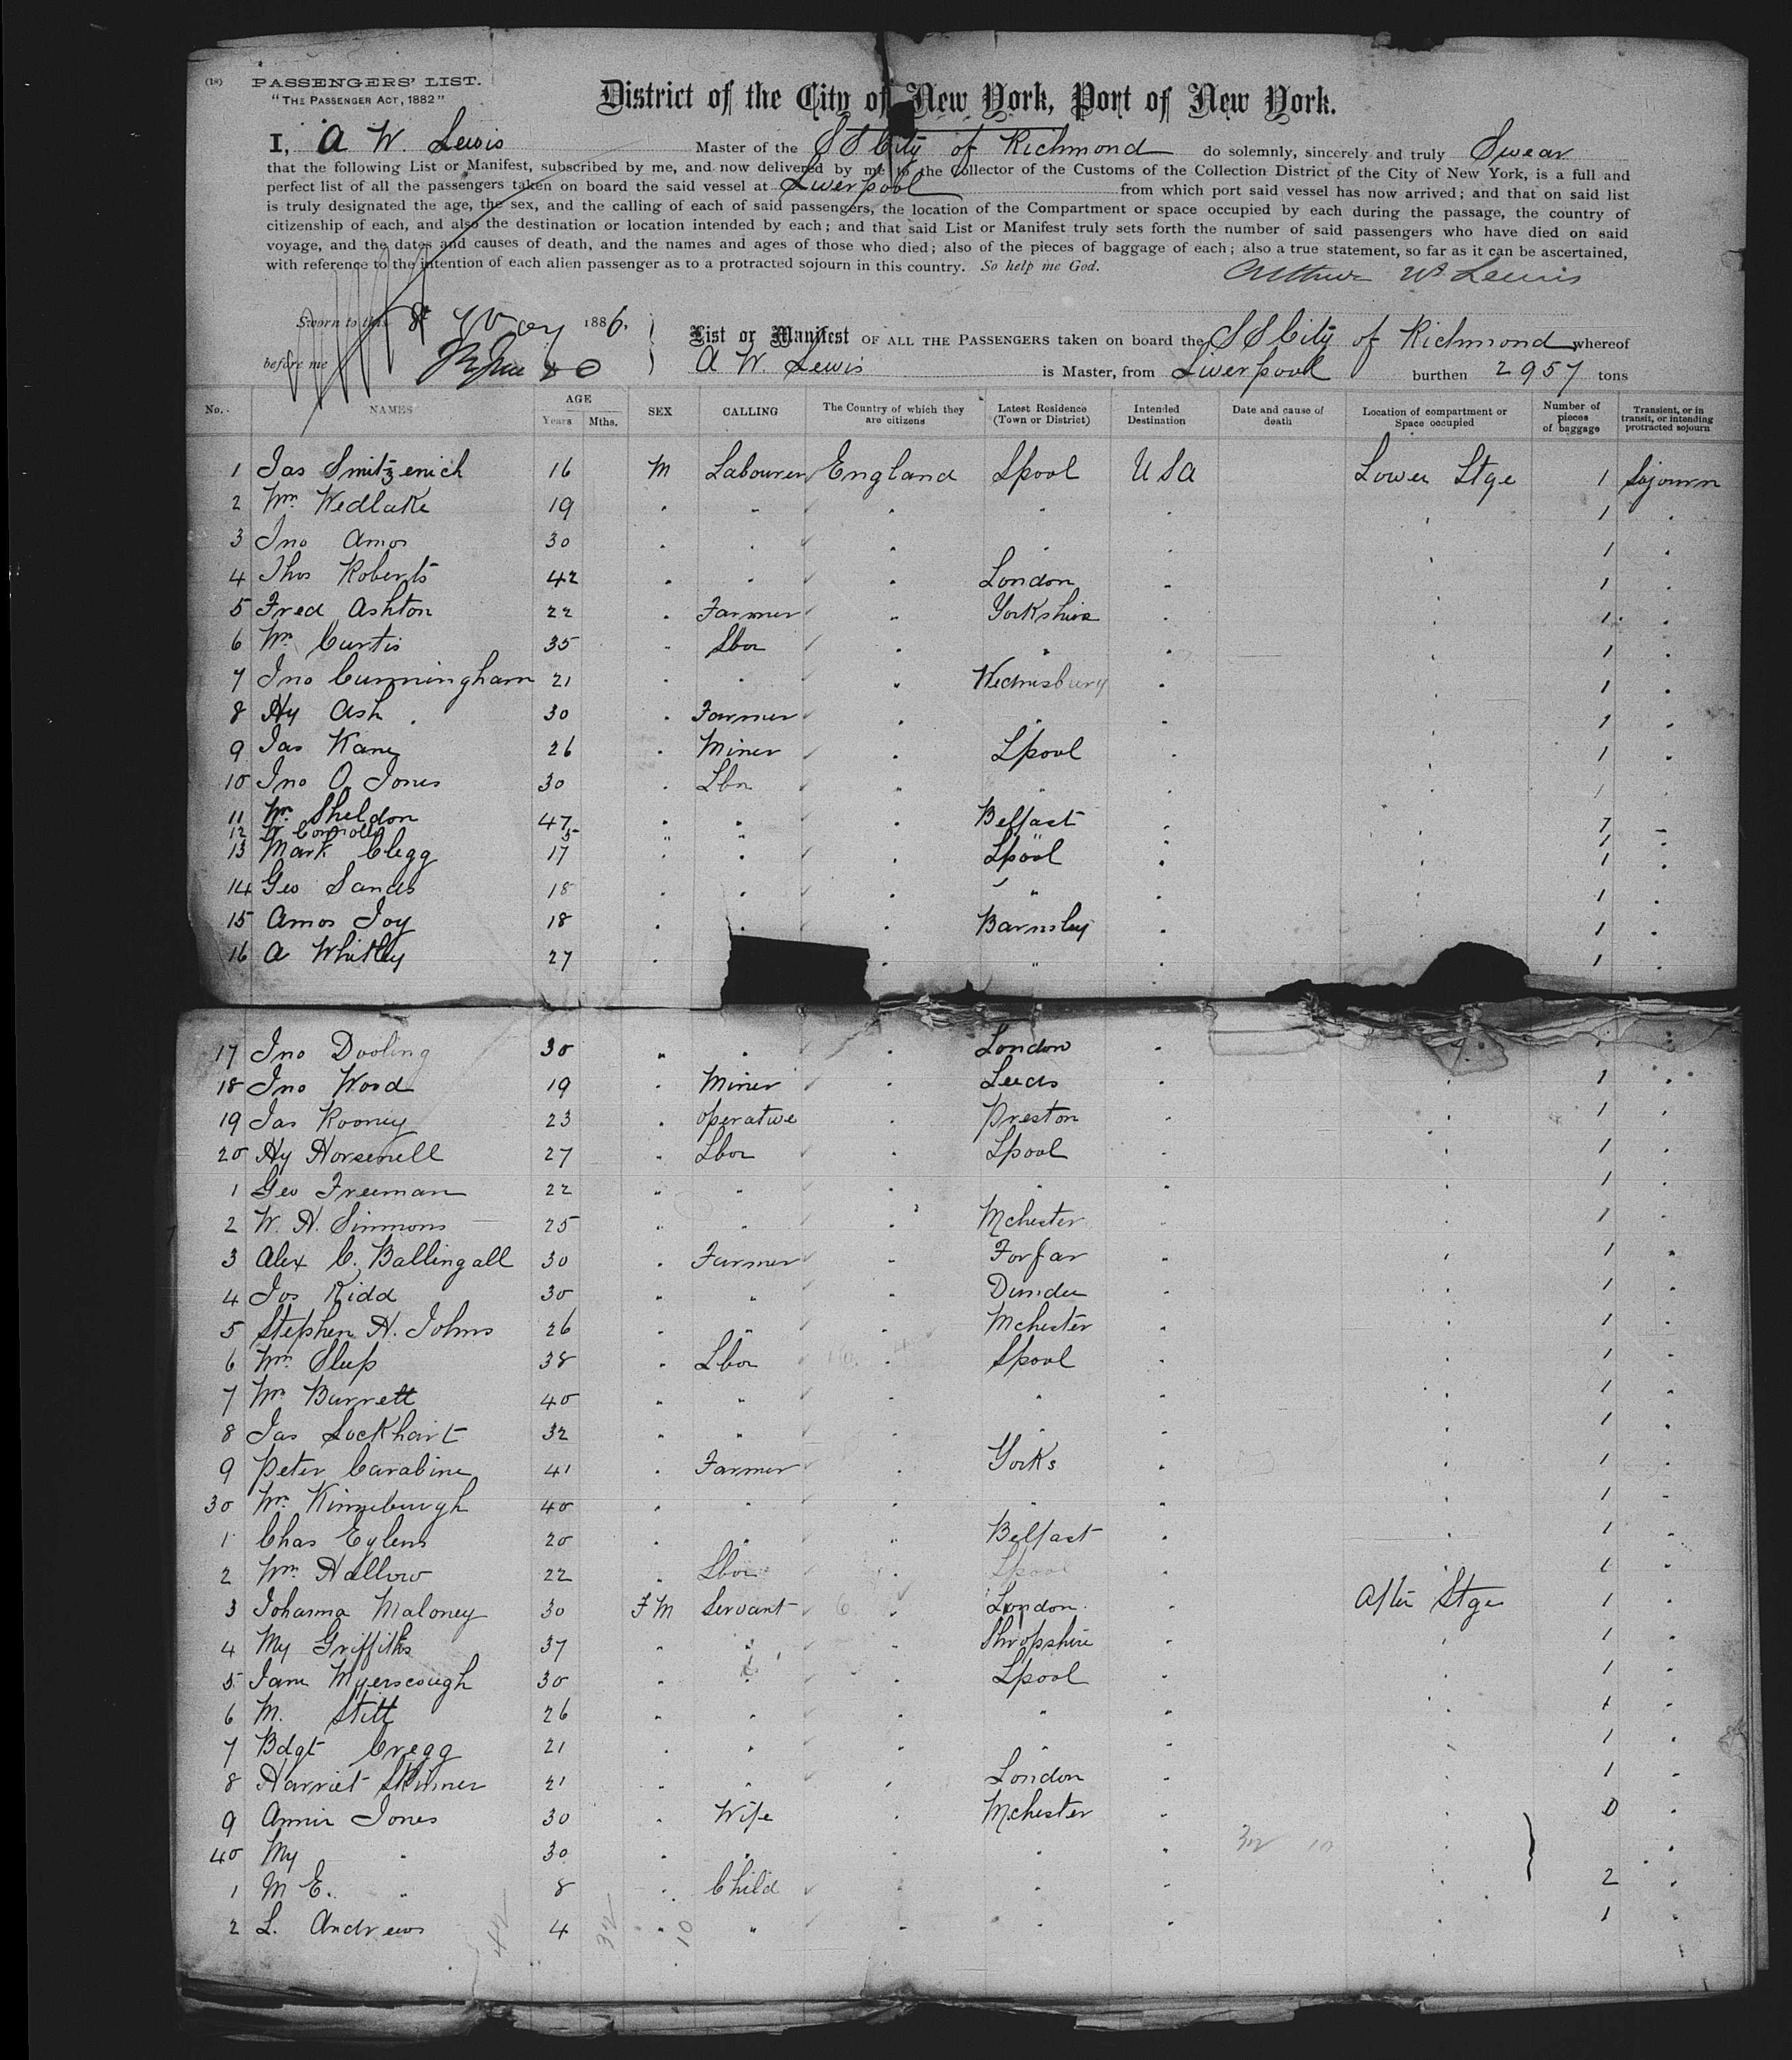 (18) PASSENGERS' LIST.
"THE PASSENGER ACT, 1882"
District of the City of New York, Port of New York.
I, A W. Lewis Master of the SS City of Richmond do solemnly, sincerely and truly Swear
that the following List or Manifest, subscribed by me, and now delivered by me to the Collector of the Customs of the Collection District of the City of New York, is a full and
perfect list of all the passengers taken on board the said vessel at Liverpool from which port said vessel has now arrived; and that on said list
is truly designated the age, the sex, and the calling of each of said passengers, the location of the Compartment or space occupied by each during the passage, the country of
citizenship of each, and also the destination or location intended by each; and that said List or Manifest truly sets forth the number of said passengers who have died on said
voyage, and the dates and causes of death, and the names and ages of those who died; also of the pieces of baggage of each; also a true statement, so far as it can be ascertained,
with reference to the intention of each alien passenger as to a protracted sojourn in this country. So help me God.
Arthur W. Lewis
Sworn to this 8 May 1886.
before me
List or Manifest OF ALL THE PASSENGERS taken on board the SS City of Richmond whereof
A W. Lewis is Master, from Liverpool burthen 2957 tons
No. NAMES AGE Years Mths. SEX CALLING The Country of which they are citizens Latest Residence (Town or District) Intended Destination Date and cause of death Location of compartment or Space occupied Number of pieces of baggage Transient, or in transit, or intending protracted sojourn
1 Jas Smitzenich 16 M Labourer England Lpool USA Lower Stge 1 Sojourn
2 Wm Wedlake 19 " " " " " " 1 "
3 Jno Amos 30 " " " " " " 1 "
4 Thos Roberts 42 " " " London " " 1 "
5 Fred Ashton 22 " Farmer " Yorkshire " " 1 "
6 Wm Curtis 35 " Lbor " " " " 1 "
7 Jno Cunningham 21 " " " Wednesbury " " 1 "
8 Hy Ash 30 " Farmer " " " " 1 "
9 Jas Kane 26 " Miner " Lpool " " 1 "
10 Jno O. Jones 30 " Lbr " " " " 1 "
11 Wm Sheldon 47 " " " Belfast " " 1 "
12 W Connolly 5 " " " " " 1 "
13 Mark Clegg 17 " " " Lpool " " 1 "
14 Geo Sands 18 " " " " " " 1 "
15 Amos Joy 18 " " " Barnsley " " 1 "
16 A Whitley 27 " " " " 1 "
17 Jno Dooling 30 " " " London " "
18 Jno Wood 19 " Miner " Leeds " " 1 "
19 Jas Rooney 23 " operative " Preston " " 1 "
20 Hy Horsenell 27 " Lbor " Lpool " " 1 "
1 Geo Freeman 22 " " " " " " 1 "
2 W. H. Simmons 25 " " " Mchester " " 1 "
3 Alex C. Ballingall 30 " Farmer " Forfar " " 1 "
4 Jos Kidd 30 " " " Dundee " " 1 "
5 Stephen H. Johns 26 " " " Mchester " " 1 "
6 Wm Sleep 38 " Lbor " Lpool " " 1 "
7 Wm Barrett 40 " " " " " " 1 "
8 Jas Lockhart 32 " " " " " " 1 "
9 Peter Carabine 41 " Farmer " Yorks " " 1 "
30 Wm Kinneburgh 40 " " " " " " 1 "
1 Chas Eylens 20 " " " Belfast " " 1 "
2 Wm Hallow 22 " Lbor " Lpool " " 1 "
3 Johanna Maloney 30 FM Servant " London " After Stge 1 "
4 My Griffiths 37 " " " Shropshire " " 1 "
5 Jane Myerscough 30 " " " Lpool " " 1 "
6 M. Stitt 26 " " " " " " 1 "
7 Bdgt Cregg 21 " " " " " " 1 "
8 Harriet Skinner 21 " " " London " " 1 "
9 Annie Jones 30 " Wife " Mchester " " 0 "
40 My " 30 " " " " " "
1 M E. " 8 " Child " " " " 2 "
2 L. Andrews 4 " " " " " " 1 "
42 32 10